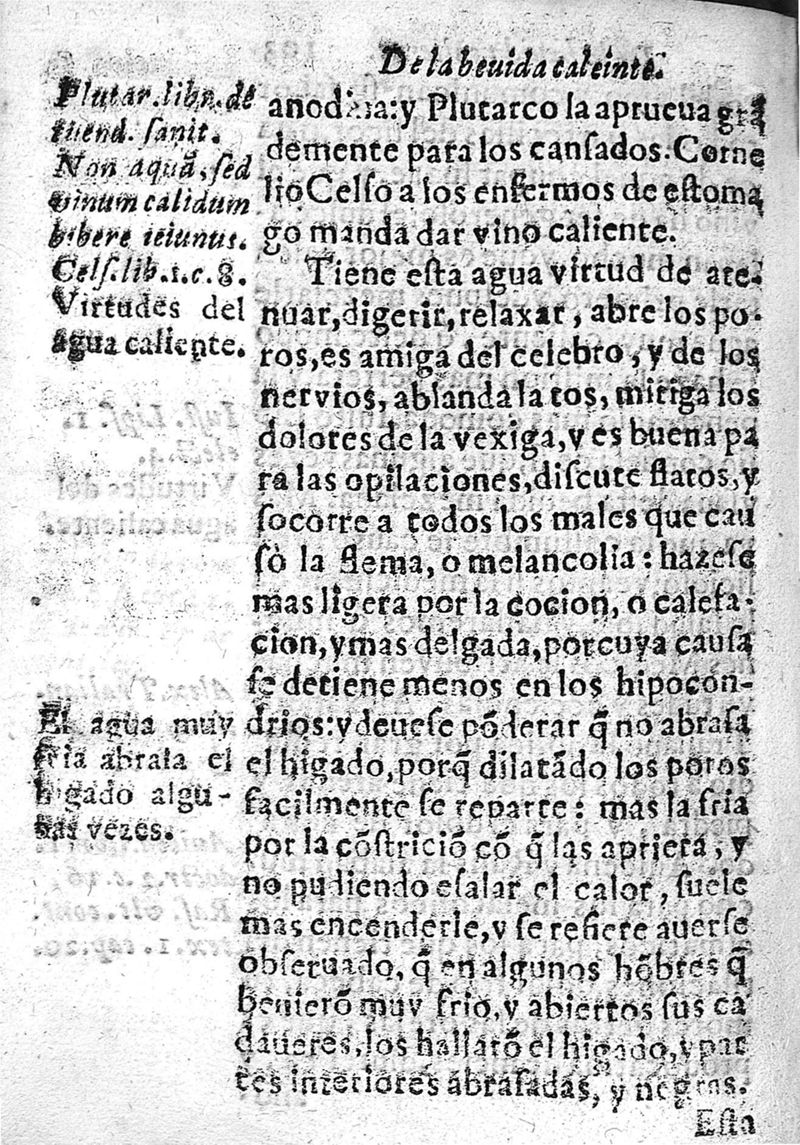 De la beuida caleinte.
Plutar. libr. de
tuend. ſanit.
Non aquã, ſed
vinum calidum
bibere ieiunus.
Celſ. lib. 1. c. 8.
Virtudes del
agua caliente.
anodina: y Plutarco la aprueua grã
demente para los canſados. Corne
lio Celſo a los enfermos de eſtoma
go manda dar vino caliente.
Tiene eſta agua virtud de ate-
nuar, digerir, relaxar, abre los po-
ros, es amiga del celebro, y de los
nervios, ablanda la tos, mitiga los
dolores de la vexiga, y es buena pa
ra las opilaciones, diſcute flatos, y
ſocorre a todos los males que cau
ſò la flema, o melancolia: hazeſe
mas ligera por la cocion, o calefa-
cion, y mas delgada, por cuya cauſa
ſe detiene menos en los hipocon-
drios: y deueſe põderar q̃ no abraſa
el higado, porq̃ dilatãdo los poros
facilmente ſe reparte: mas la fria
por la cõſtriciõ cõ q̃ las aprieta, y
no pudiendo eſalar el calor, ſuele
mas encenderle, y ſe refiere auerſe
obſeruado, q̃ en algunos hõbres q̃
beuierõ muy frio, y abiertos ſus ca
daueres, los hallarõ el higado, y par
tes interiores abraſadas, y negras.
El agua muy
fria abraſa el
higado algu-
nas vezes.
Eſta